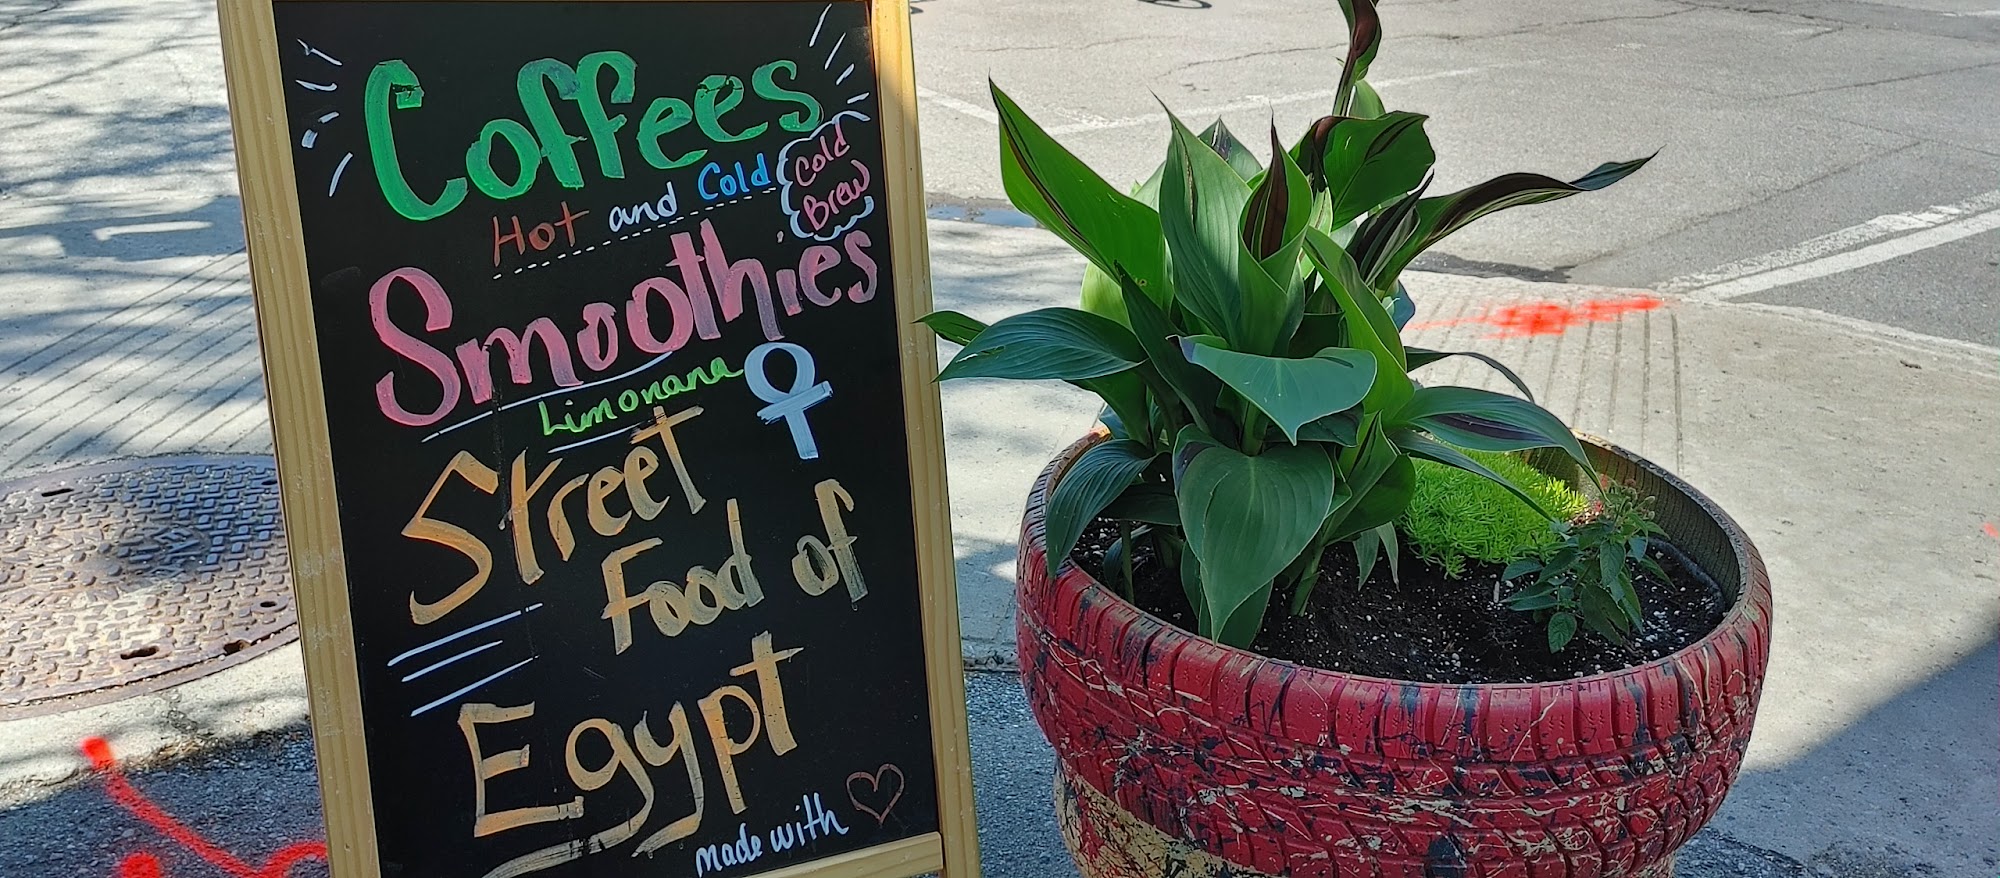 Coffees
Hot and Cold
Cold
Brew
Smoothies
Limonana
Street
Food of
Egypt
made with